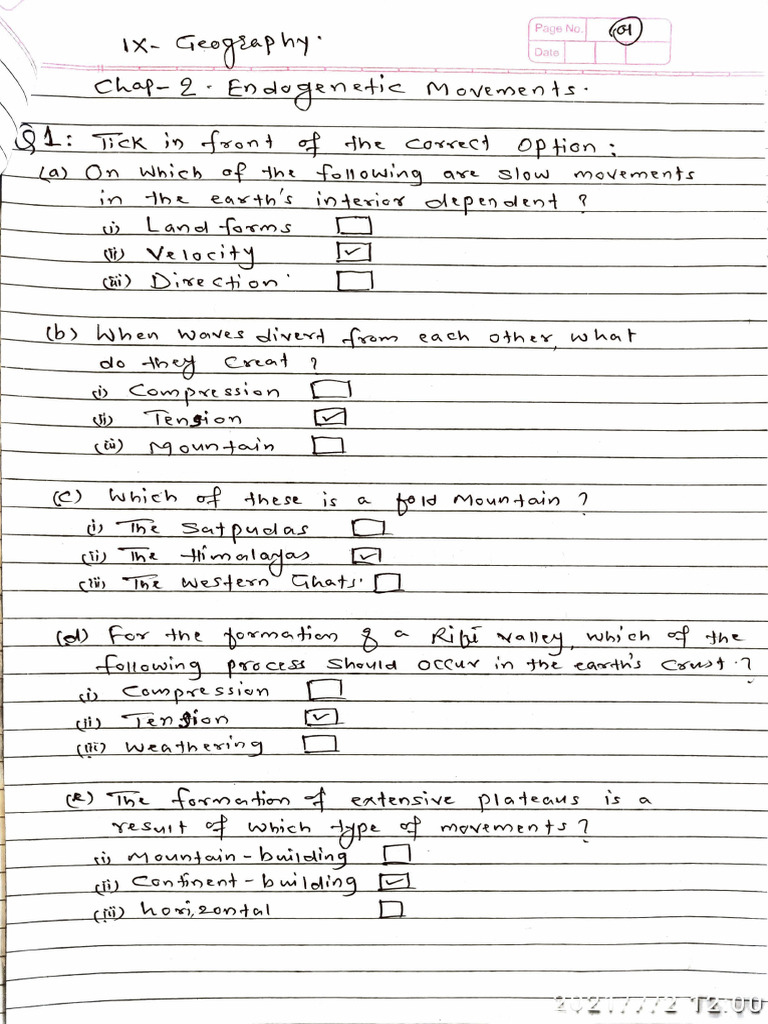 IX- Geography.
Page No. 01
Date
Chap-2. Endogenetic Movements.
Q1: Tick in front of the correct option:
(a) On which of the following are slow movements
in the earth's interior dependent ?
(i) Land forms
(ii) Velocity ✓
(iii) Direction.
(b) When waves divert from each other, what
do they creat ?
(i) Compression
(ii) Tension ✓
(iii) Mountain
(c) Which of these is a fold Mountain ?
(i) The Satpudas
(ii) The Himalayas ✓
(iii) The Western Ghats.
(d) For the formation of a Rift valley, which of the
following process should occur in the earth's crust.?
(i) Compression
(ii) Tension ✓
(iii) Weathering
(e) The formation of extensive plateaus is a
result of which type of movements ?
(i) Mountain-building
(ii) Continent-building ✓
(iii) horizontal
2021/7/2 12:00